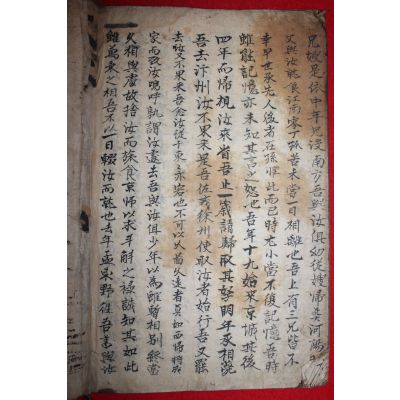 兄嫂是依中年兄歿南方吾與汝俱幼從嫂歸葬河陽
又與汝就食江南零丁孤苦未嘗一日相離也吾上有三兄皆不
幸早世承先人後者在孫惟此而已時尤小當不復記憶吾時
雖能記憶亦未知其言之悲也吾年十九始來京城其後
四年而歸視汝來省吾止一歲請歸取其孥明年丞相薨
吾去汴州汝不果來是吾佐戎徐州使取汝者始行吾又罷
去汝又不果來吾念汝從于東亦客也不可以久圖久遠者莫如西歸將成
家而致汝嗚呼孰謂汝遽去吾與汝俱少年以為雖暫相別終當
久相與處故捨汝而旅食京師以求斗斛之祿誠知其如此
雖萬乘之相吾不以一日輟汝而就也去年孟東野往吾書與汝